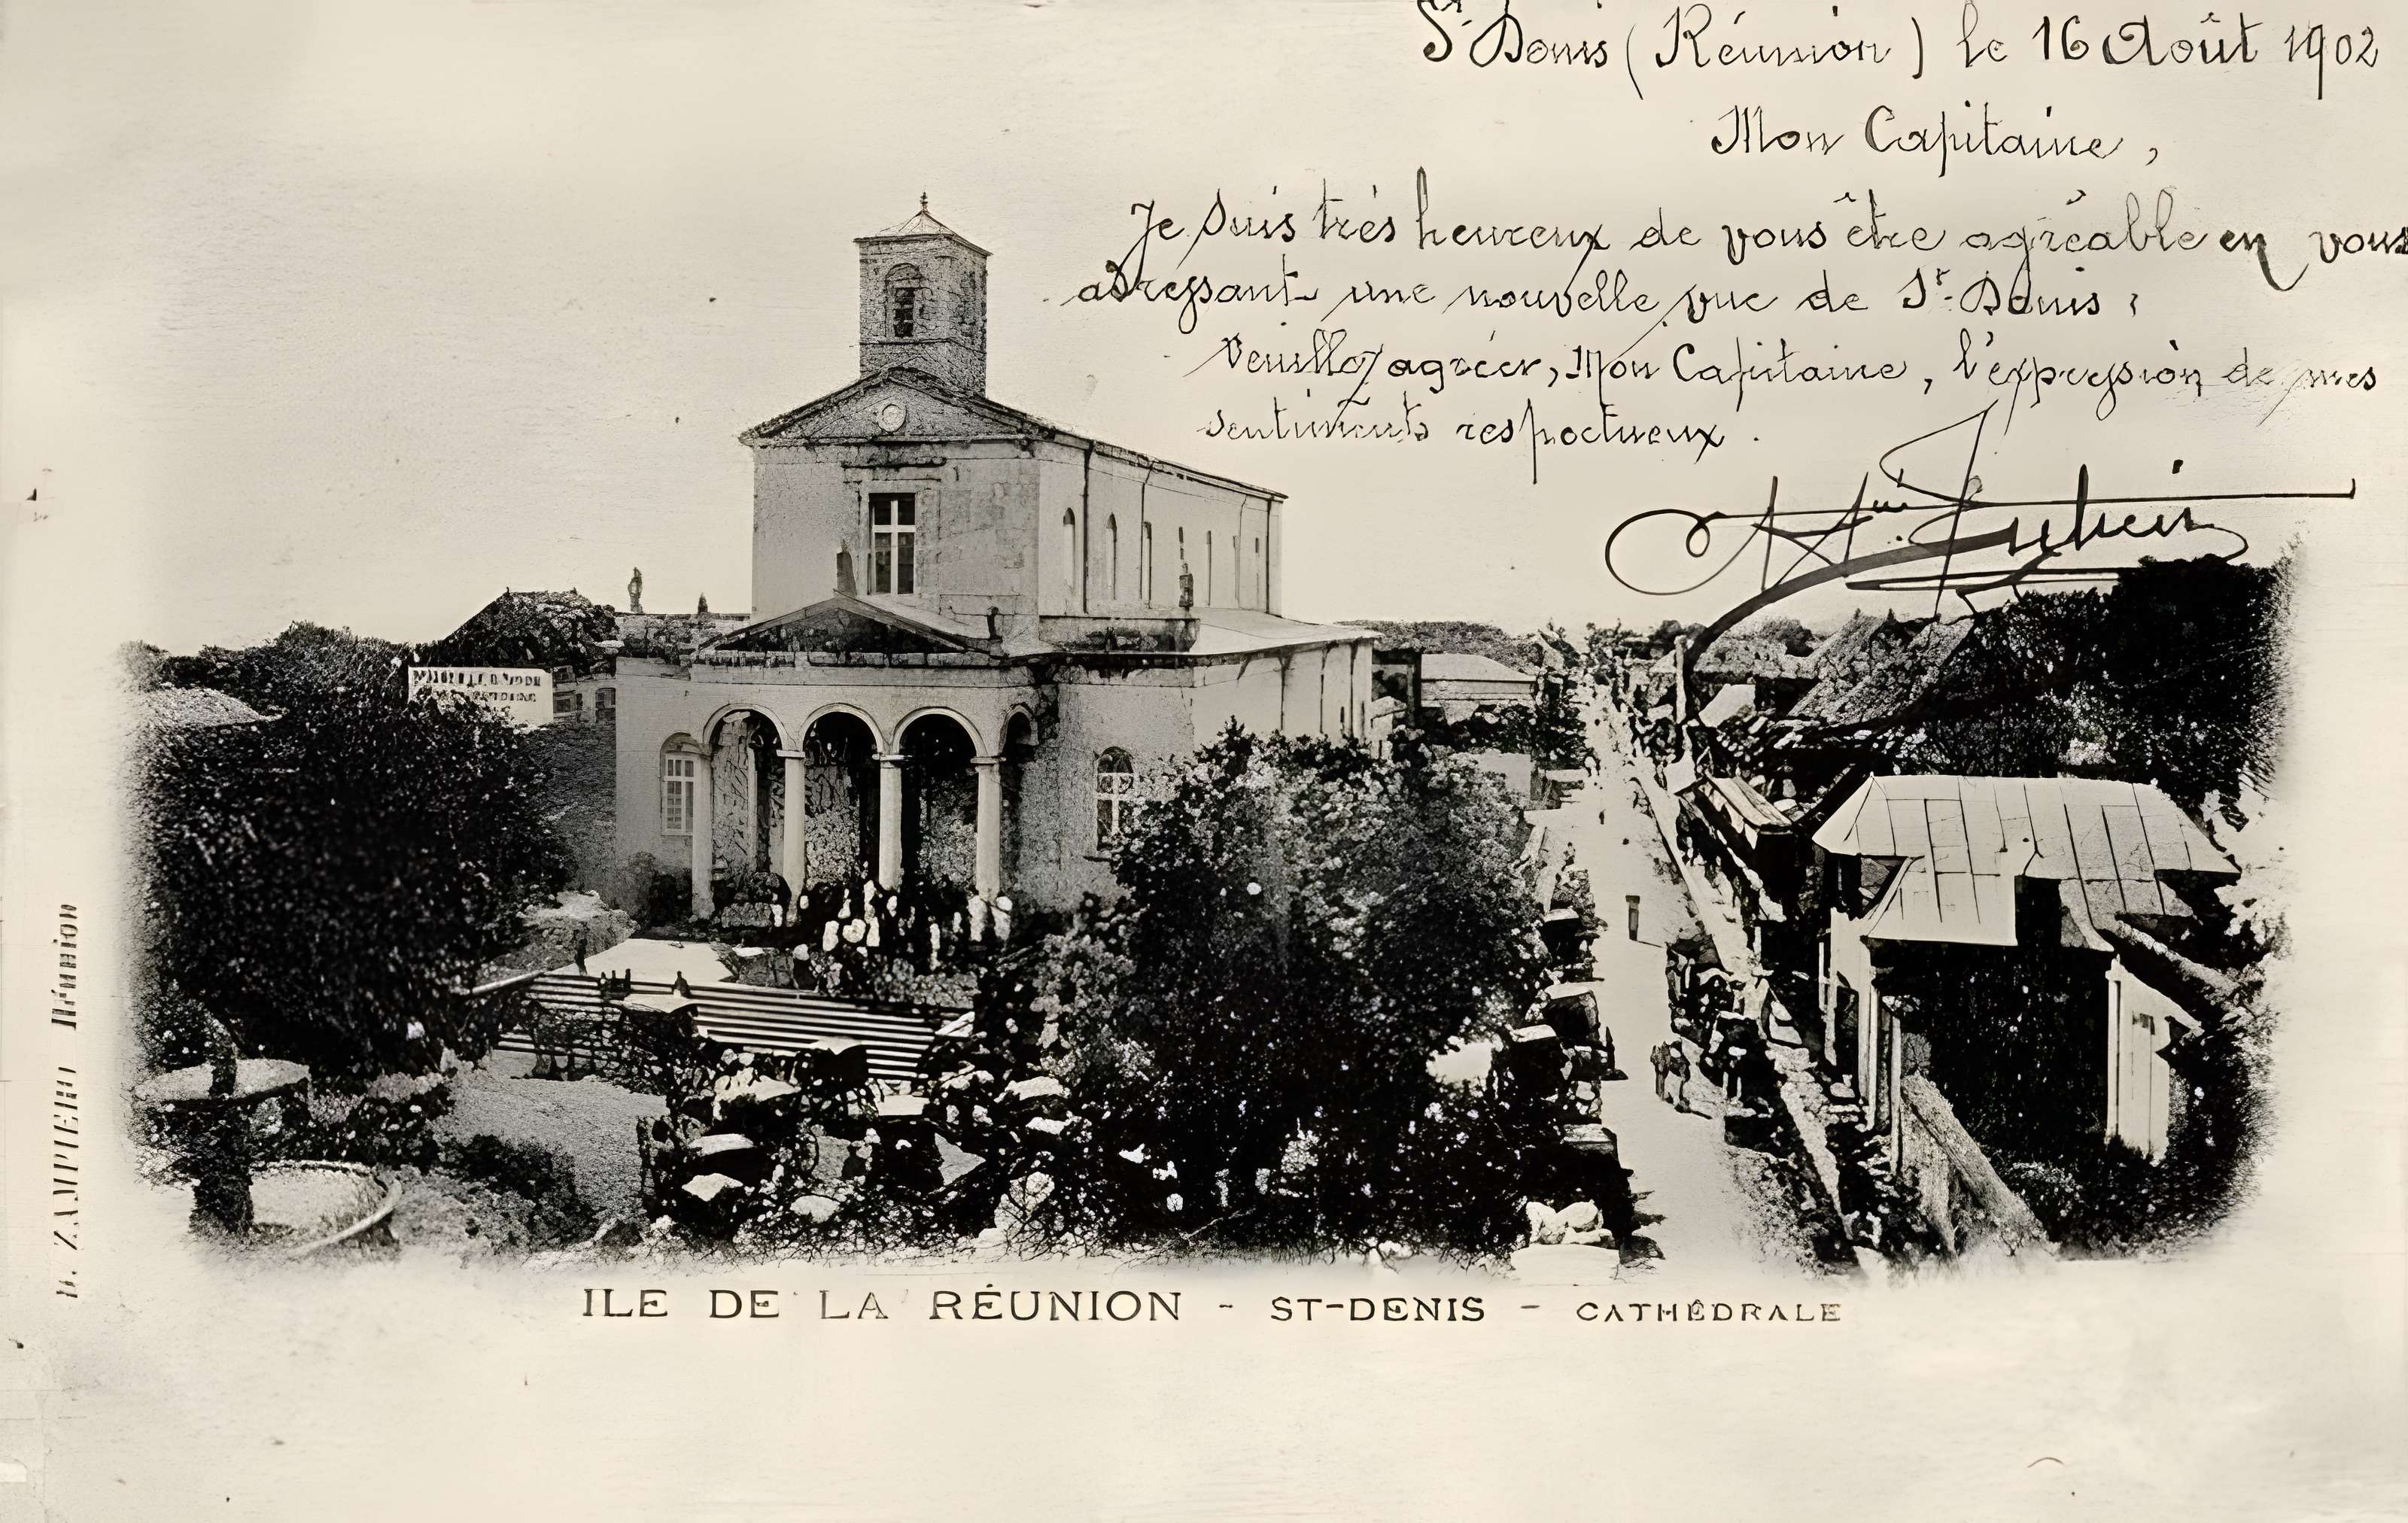 St Denis (Réunion) le 16 Août 1902
Mon Capitaine,
Je suis très heureux de vous être agréable en vous
adressant une nouvelle vue de St-Denis.
Veuillez agréer, Mon Capitaine, l'expression de mes
sentiments respectueux.
D. ZAMPIERO Réunion
ILE DE LA RÉUNION - ST-DENIS - CATHÉDRALE